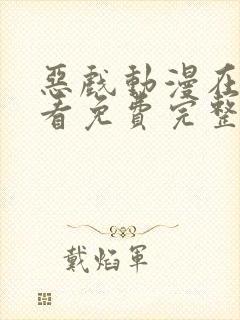 惡戲動漫在
看免費完整
戴焰軍